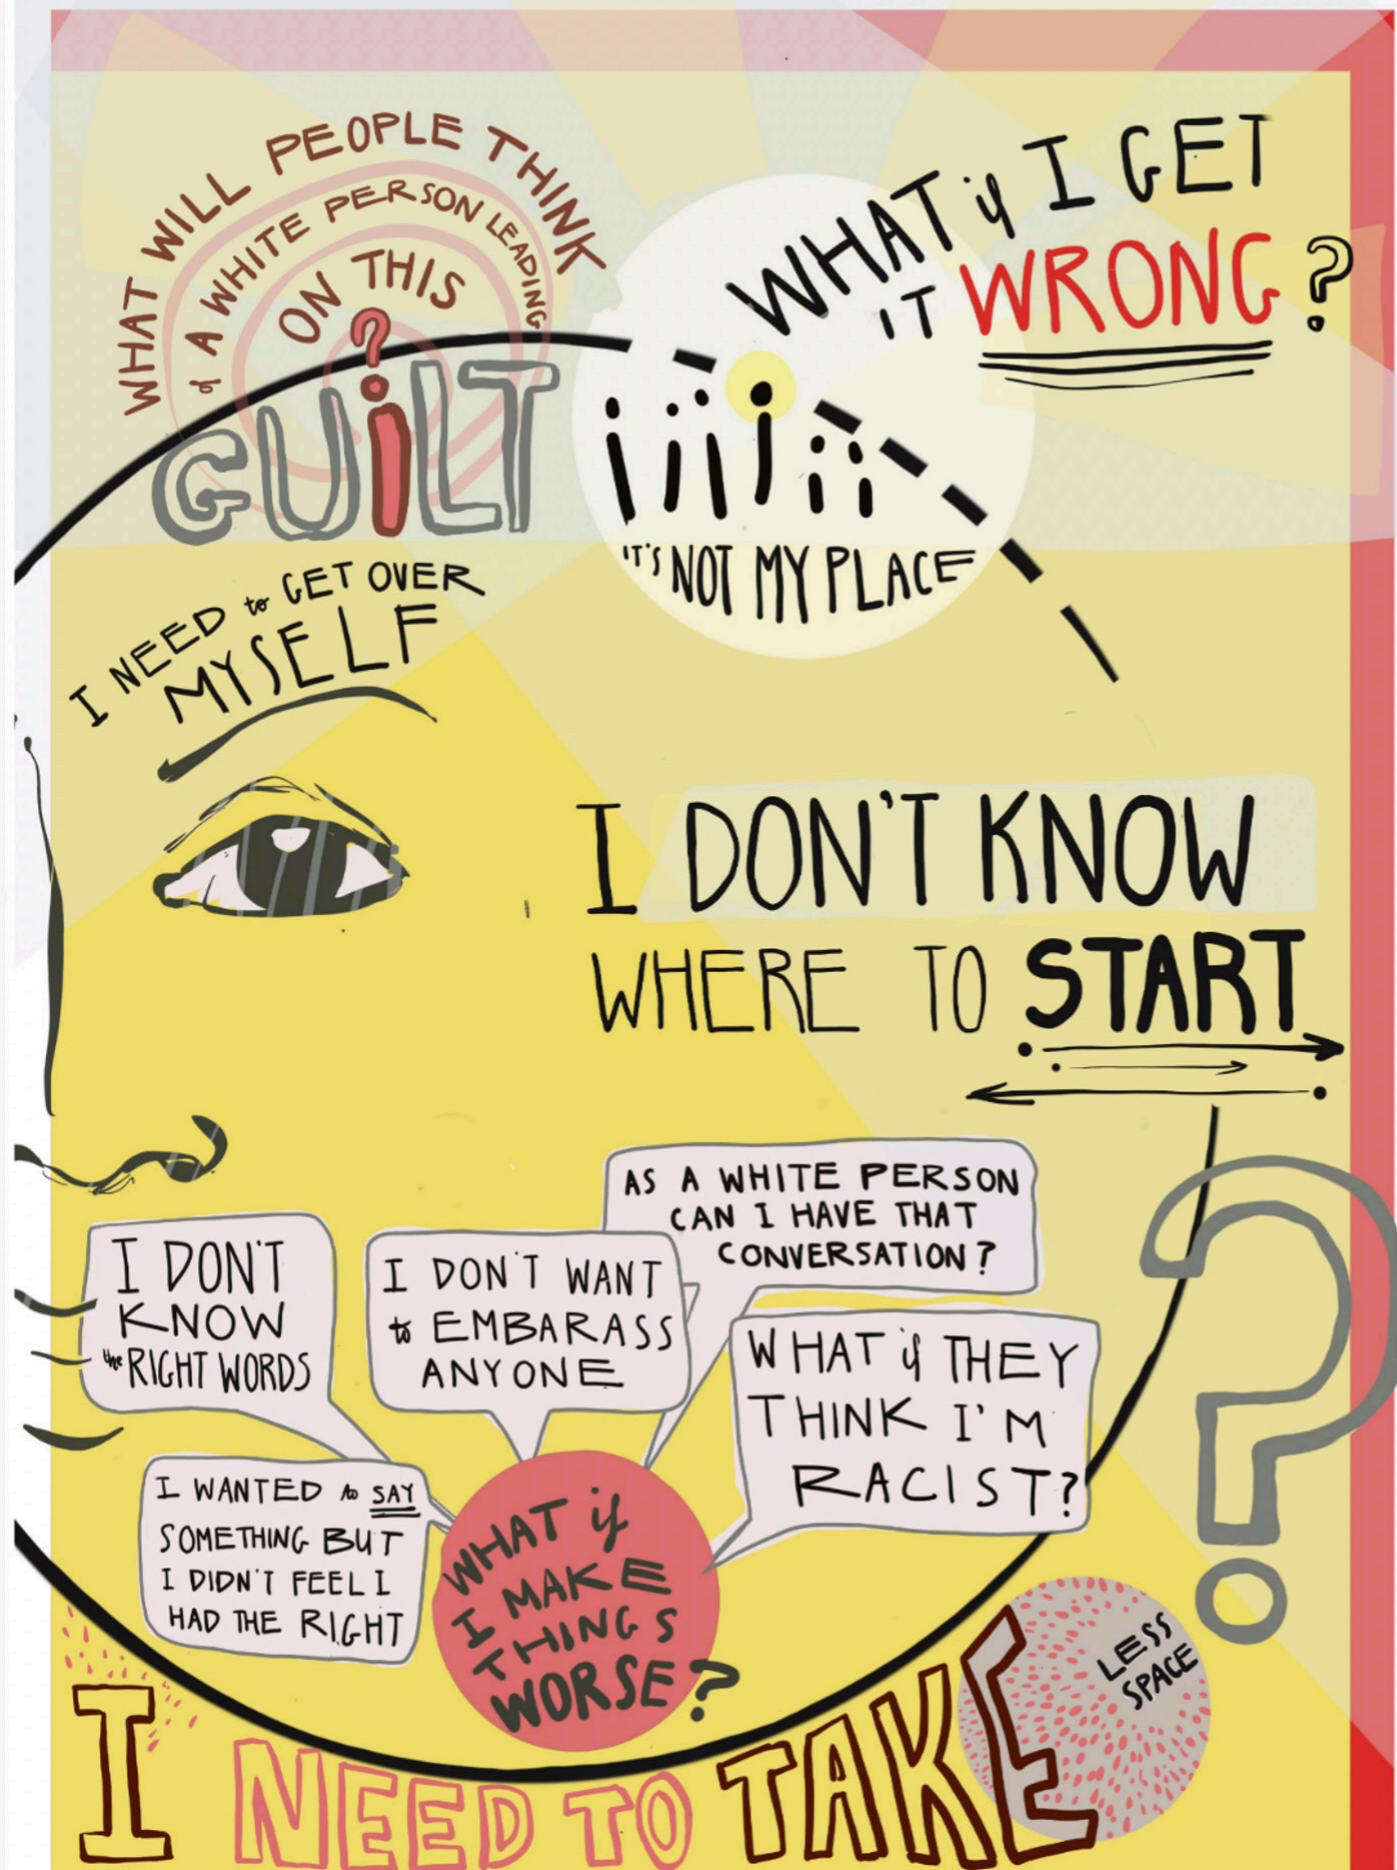 WHAT WILL PEOPLE THINK
of A WHITE PERSON LEADING
ON THIS
?
GUiLT
WHAT if I GET
IT WRONG?
IT'S NOT MY PLACE
I NEED to GET OVER
MYSELF
I DON'T KNOW
WHERE TO START
AS A WHITE PERSON
CAN I HAVE THAT
CONVERSATION?
I DON'T
KNOW
the RIGHT WORDS
I DON'T WANT
to EMBARASS
ANYONE
WHAT if THEY
THINK I'M
RACIST?
?
I WANTED to SAY
SOMETHING BUT
I DIDN'T FEEL I
HAD THE RIGHT
WHAT if
I MAKE
THINGS
WORSE?
I NEED TO TAKE
LESS
SPACE